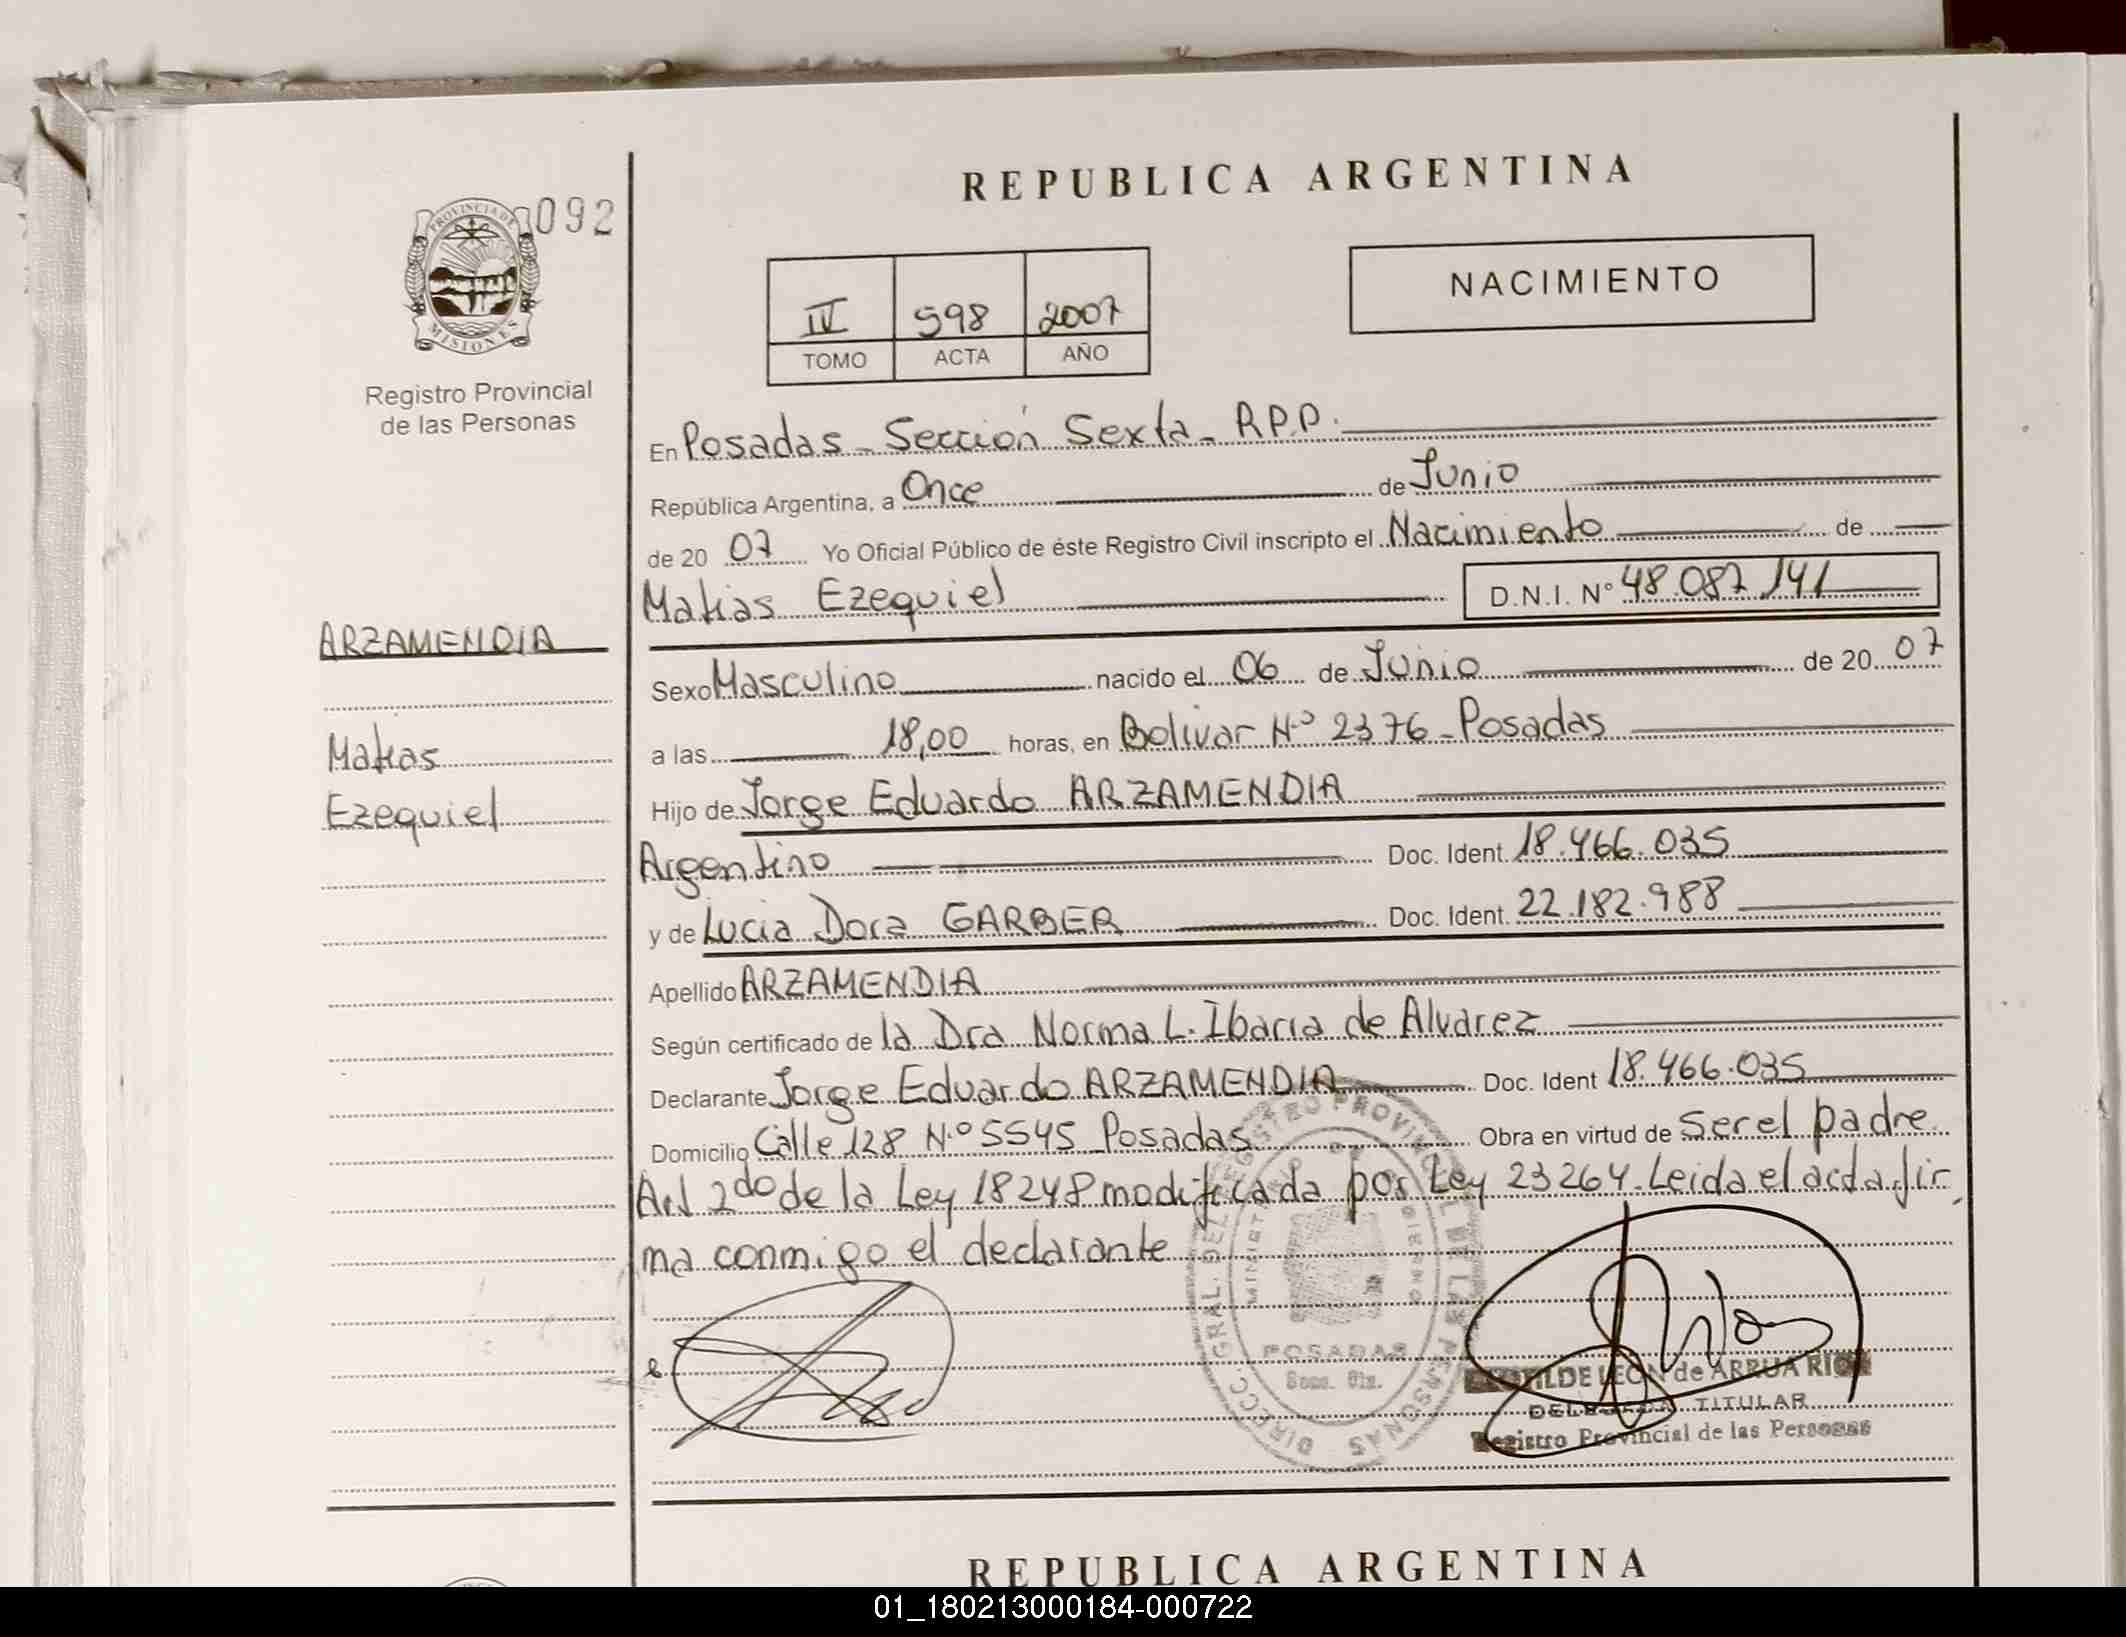 REPUBLICA ARGENTINA
PROVINCIA DE
MISIONES
092
NACIMIENTO
IV 598 2007
TOMO ACTA AÑO
Registro Provincial
de las Personas
En Posadas - Sección Sexta - R.P.P.
República Argentina, a Once de Junio
de 20 07 Yo Oficial Público de éste Registro Civil inscripto el Nacimiento de
Matias Ezequiel D.N.I. Nº 48.087.141
ARZAMENDIA
Sexo Masculino nacido el 06 de Junio de 20 07
Matias
a las 18,00 horas, en Bolivar Nº 2376 - Posadas
Ezequiel
Hijo de Jorge Eduardo ARZAMENDIA
Argentino Doc. Ident. 18.466.035
y de Lucia Dora GARBER Doc. Ident. 22.182.988
Apellido ARZAMENDIA
Según certificado de la Dra Norma L. Ibarra de Alvarez
Declarante Jorge Eduardo ARZAMENDIA Doc. Ident 18.466.035
Domicilio Calle 128 Nº 5545 Posadas Obra en virtud de Ser el padre
Art 2do de la Ley 18248 modificada por Ley 23264. Leida el acta fir
ma conmigo el declarante
DIRECC. GRAL. DEL REGISTRO PROVINCIAL DE LAS PERSONAS
POSADAS
LEON de ARRUA RIOS
DELEGADA TITULAR
Registro Provincial de las Personas
REPUBLICA ARGENTINA
01_180213000184-000722